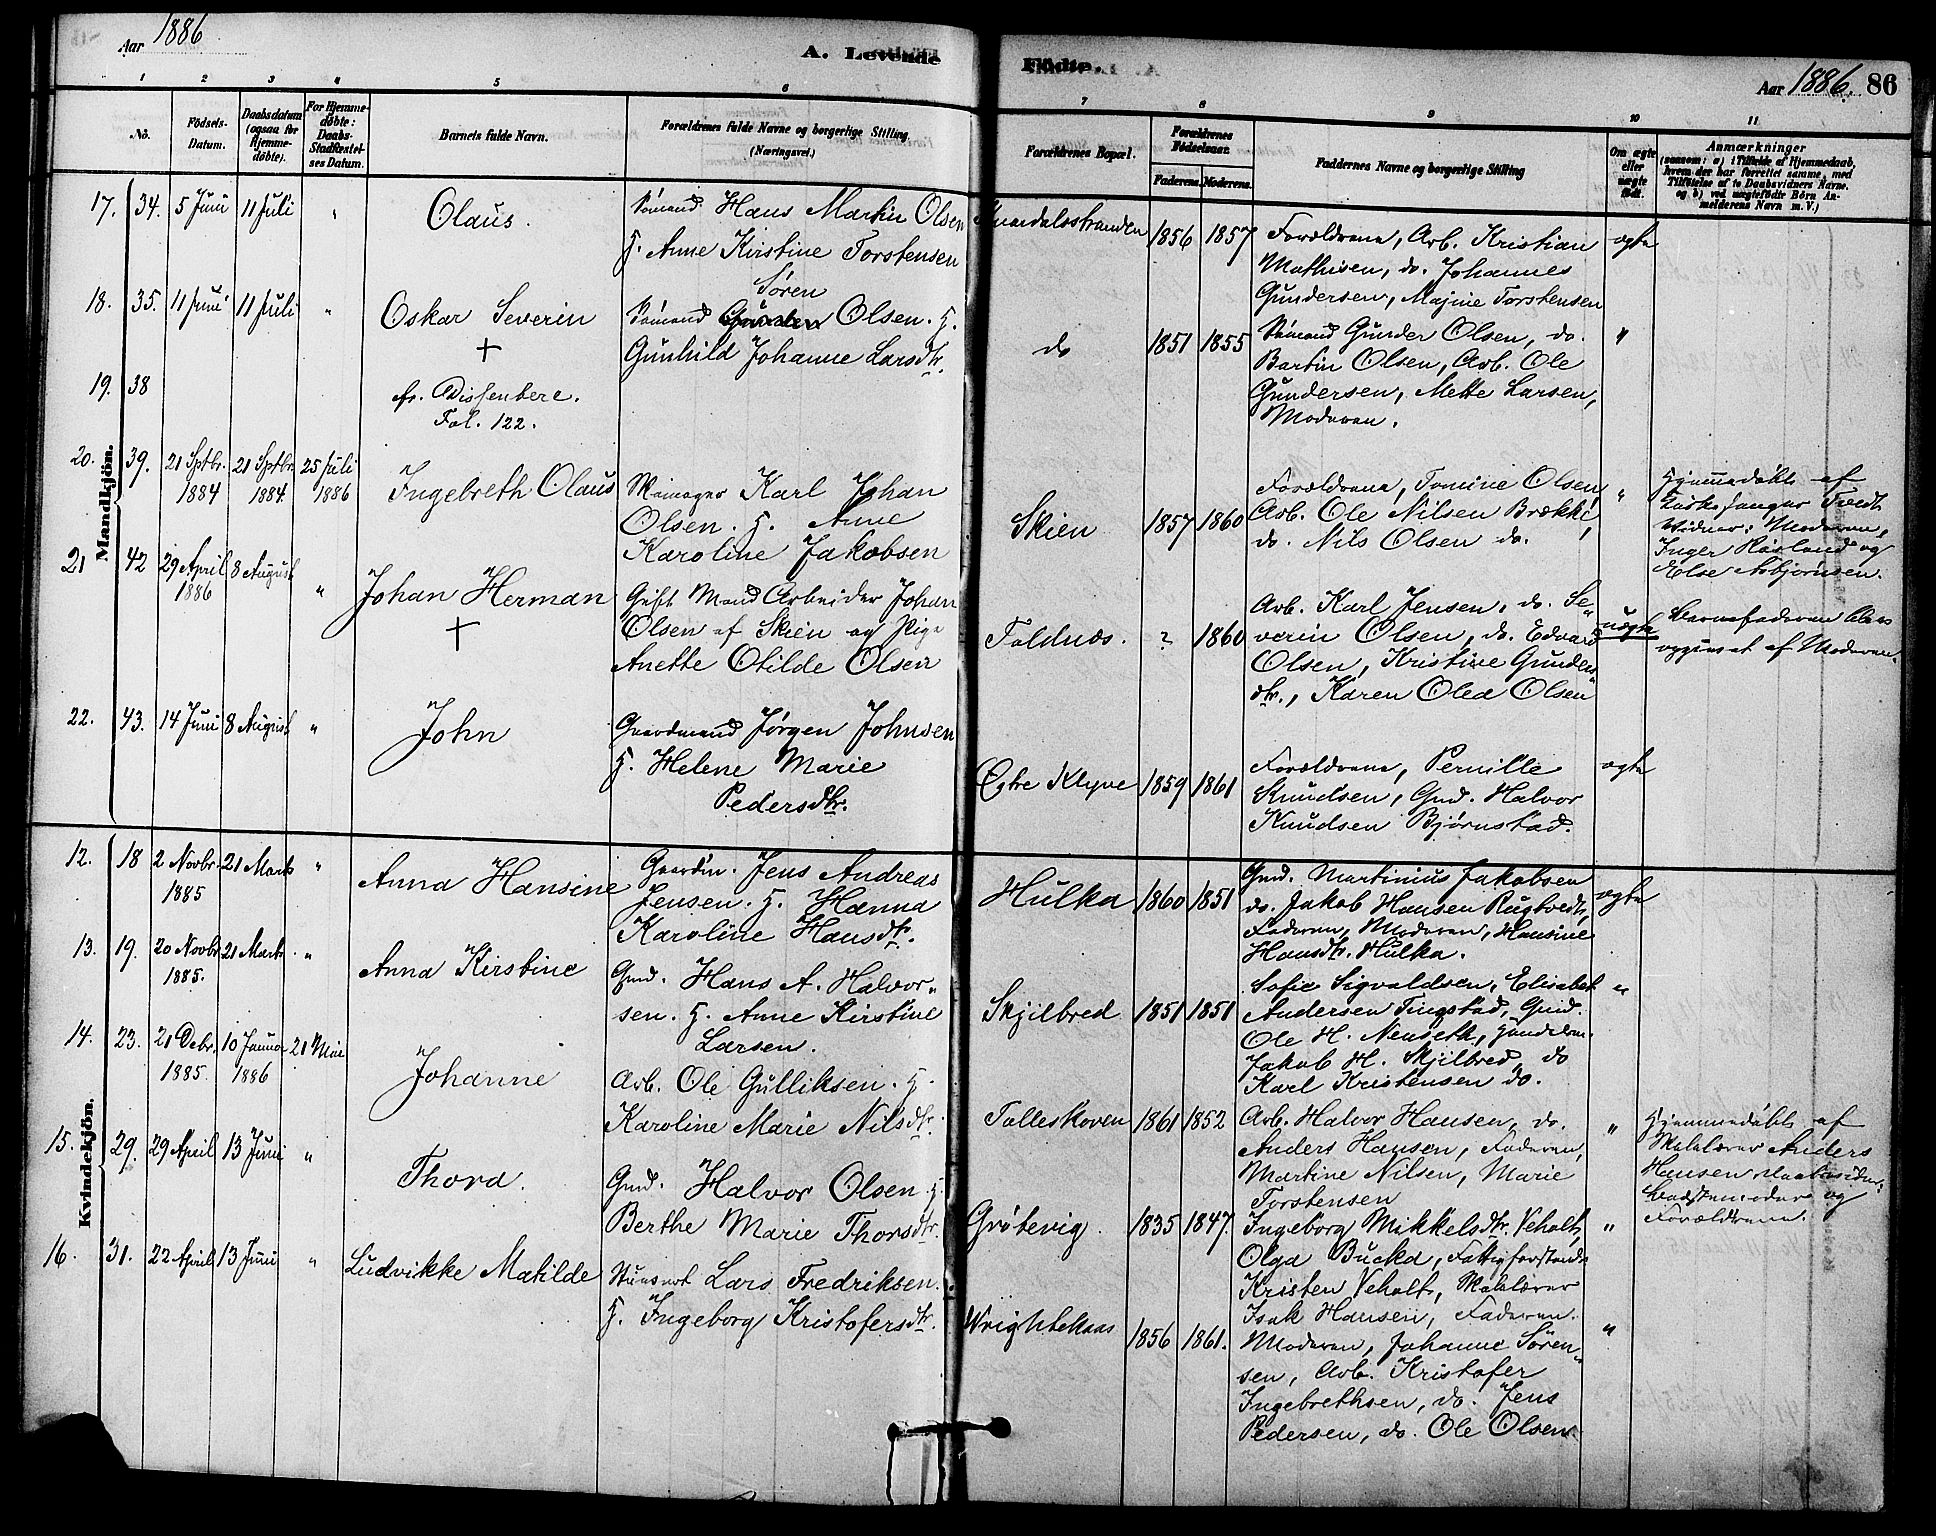 Aar 1886
A. Levende Fødte.
Aar 1886. 86
1 2 3 4 5 6 7 8 9 10 11
No.
Fødsels-Datum.
Daabsdatum (ogsaa for Hjemmedøbte).
For Hjemmedøbte: Daabs-Stadfæstelses Datum.
Barnets fulde Navn.
Forældrenes fulde Navne og borgerlige Stilling. (Næringsvei.)
Forældrenes Bopæl.
Forældrenes Fødselsaar.
Faderens. Moderens.
Faddernes Navne og borgerlige Stilling
Om ægte eller uægte født.
Anmærkninger
(saasom: a) i Tilfælde af Hjemmedaab, hvem der har forrettet samme, med Tilføielse af to Daabsvidners Navne. og b) ved uægtefødte Børn Anmelderens Navn m. V.)
Mandkjön.
17. 34. 5 Juni 11 Juli " Olaus.
Sömand Hans Martin Olsen
H. Anne Kirstine Torstensen
1856 1857
Forældrene, Arb. Kristian
Mathisen, do. Johannes
Gundersen, Majine Torstensen
ægte
18. 35. 11 Juni 11 Juli " Oskar Severin
+
Søren
Sömand Gunder Olsen. H.
Gunhild Johanne Larsdtr.
do 1851 1855
Sömand Gunder Olsen, do.
Bartin Olsen, Arb. Ole
Gundersen, Mette Larsen,
Moderen.
"
19. 38
fr. Dissentere.
Fol. 122.
20. 39. 21 Sptbr. 1884 21 Sptbr. 1884 25 Juli 1886 Ingebreth Olaus
Karl Johan
Olsen. H. Anne
Karoline Jakobsen
Skien 1857 1860
Forældrene, Tomine Olsen
Arb. Ole Nilsen Brække,
do. Nils Olsen do.
"
Hjemmedöbt af
Vidner: Moderen,
Inger Røsland og
Else Asbjörnsen.
21 42 29 April 1886 8 August " Johan Herman
+
Gift Mand Arbeider Johan
Olsen af Skien og Pige
Anette Otilde Olsen
Foldnæs. ? 1860
Arb. Karl Jensen, do. Se-
verin Olsen, do. Edvard
Olsen, Kristine Gunders-
dtr., Karen Olea Olsen
uægte
Barnefaderen
opgivet af Moderen.
22. 43. 14 Juni 8 August " John
Gaardmand Jørgen Johnsen
H. Helene Marie
Pedersdtr.
Østre Klyve 1859 1861
Forældrene, Pernille
Knudsen, Gmd. Halvor
Knudsen Bjørnstad.
ægte
Kvindekjön.
12. 18 2 Novbr. 1885 21 Marts " Anna Hansine
Gaardm. Jens Andreas
Jensen. H. Hanna
Karoline Hansdtr.
Hulka 1860 1851
Gmd. Martinius Jakobsen
do. Jakob Hansen Rugtvedt,
Faderen, Moderen, Hansine
Hansdtr. Hulka.
ægte
13. 19. 20 Novbr 1885. 21 Marts " Anna Kirstine
Gmd. Hans A. Halvor-
sen. H. Anne Kirstine
Larsen.
Skjilbred 1851 1851
Sofie Sigvaldsen, Elisabet
Andersen Tingstad, Gmd.
Ole H. Nenseth,
Jakob H. Skjilbred, do
Karl Kristensen do.
"
14. 23. 21 Debr. 1885. 10 Januar 1886 21 Mai Johanne
Arb. Ole Gulliksen. H.
Karoline Marie Nilsdtr.
Tolleskoven 1861 1852
Arb. Halvor Hansen, do.
Anders Hansen, Faderen,
Martine Nilsen, Marie
Torstensen
"
Hjemmedöbt af
Skolelærer Anders
Hansen
og
Forældrene.
15. 29. 29 April 13 Juni " Thora.
Gmd. Halvor Olsen H.
Berthe Marie Thorsdtr.
Grötevig. 1835 1847.
Ingeborg Mikkelsdtr. Veholt,
Olga Bucka, Fattigforstand.
Kristen Veholt, Skolelærer
Isak Hansen, Faderen.
"
16. 31. 22 April 13 Juni " Ludvikke Matilde
Lars Fredriksen.
H. Ingeborg Kristofersdtr.
1856 1861.
Moderen, Johanne Sören-
sen, Arb. Kristofer
Ingebrethsen, do. Jens
Pedersen, do. Ole Olsen.
"